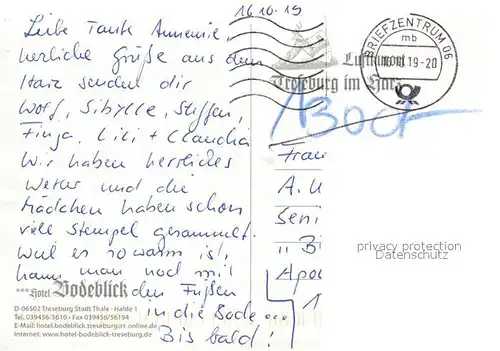 16.10.19
Liebe Tante Annemie,
herzliche Grüße aus dem
Harz senden dir
Wolf, Sibylle, Steffen,
Finja, Lili + Claudia
Wir haben herrliches
Wetter und die
Mädchen haben schon
viele Stempel gesammelt.
Weil es so warm ist,
kann man noch mit
den Füßen
in die Bode ...
Bis bald!
***Hotel Bodeblick
D-06502 Treseburg Stadt Thale · Halde 1
Tel. 039456/5610 - Fax 039456/56194
E-Mail: hotel.bodeblick.treseburg@t-online.de
Internet: www.hotel-bodeblick.de
Luftkurort
Treseburg im Harz
BRIEFZENTRUM 06
mb
19-20
Frau
A.
Seni
"B
Apo
1
privacy protection
Datenschutz